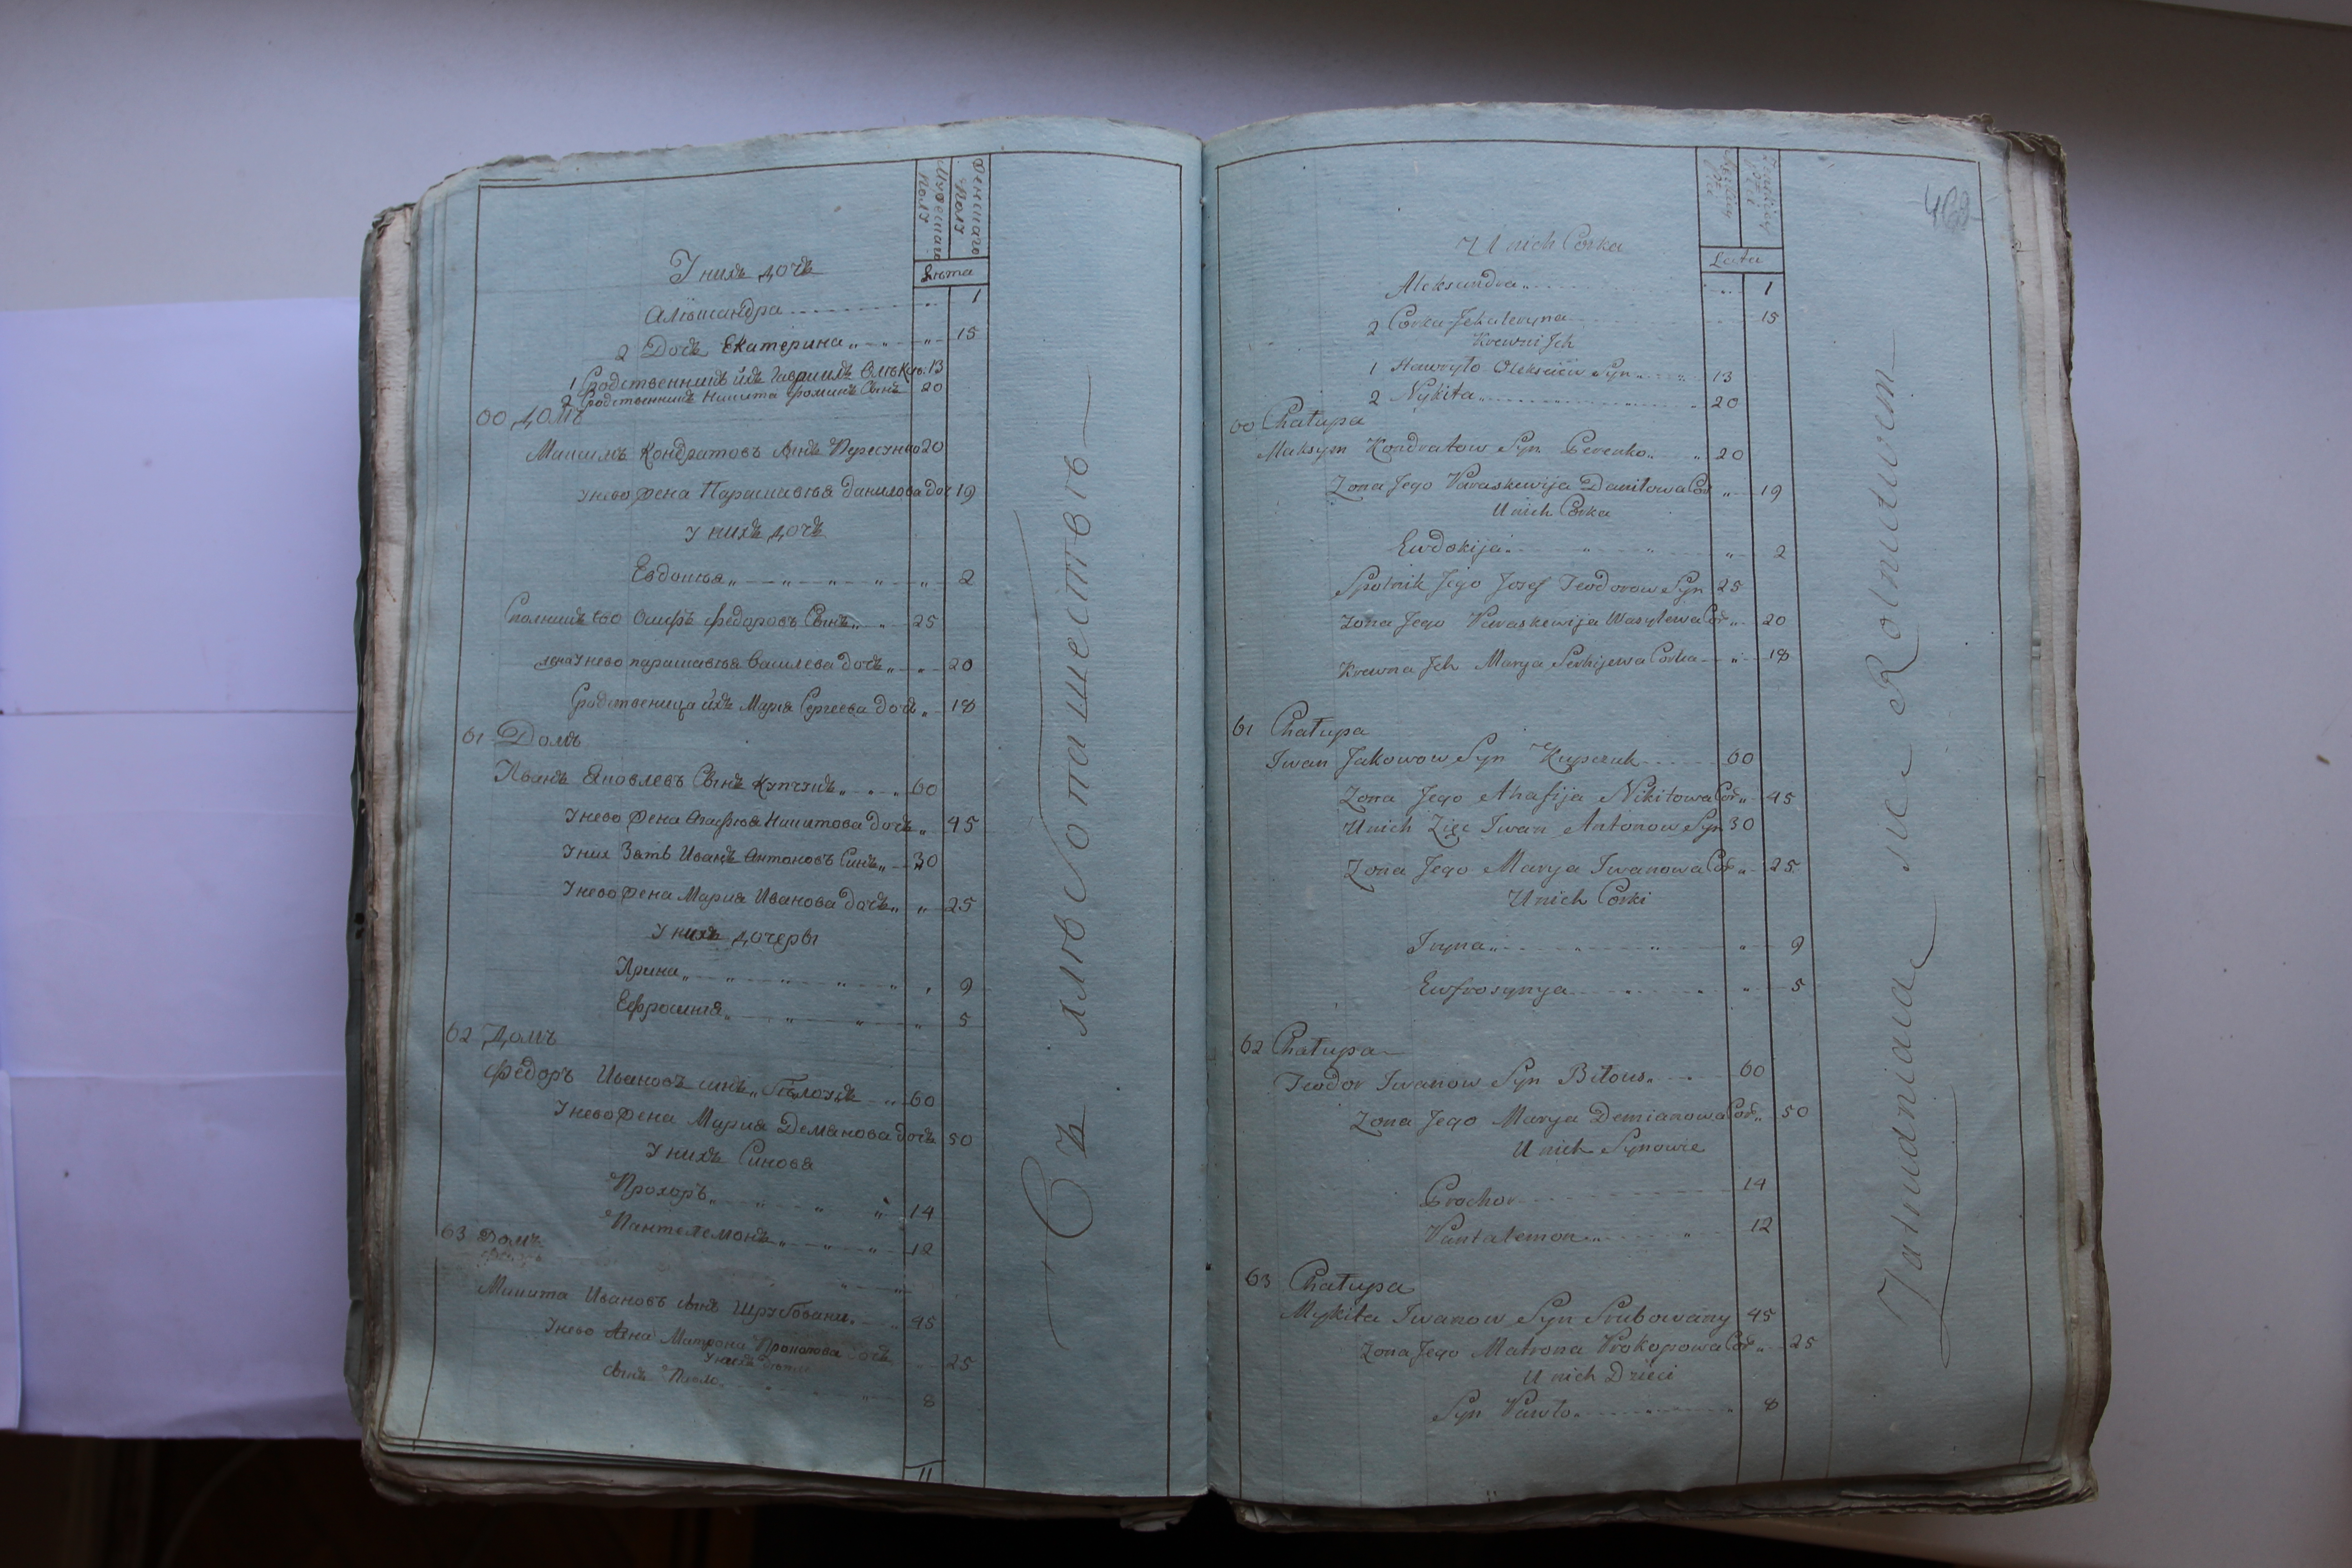 Мужескаго
Полу
Женшаго
Полу
Лѣта
У нихъ дочь
Алѣксандра 1
2 Дочь Екатерина 15
1 Сродственникъ ихъ Гавриилъ Олѣкс: 13
2 Сродственникъ Никита Фоминъ Сынъ 20
60 Домъ
Максимъ Кондратовъ Сынъ 20
У нево жена Парасковія Данилова доч 19
У нихъ дочь
Евдокія 2
Сполникъ ево Осифъ Федоровъ Сынъ 25
жена У нево парасковія Василева дочь 20
Сродственица ихъ Марія Сергеева дочь 18
61 Домъ
Иванъ Яковлевъ Сынъ Купчукъ 60
У нево жена Агафія Никитова дочь 45
У них Зять Иванъ Антоновъ Синъ 30
У нево жена Мария Иванова дочь 25
У нихъ дочеры
Ирина 9
Ефросинія 5
62 Домъ
Федоръ Ивановъ синъ Бѣлоусъ 60
У нево жена Мария Демянова дочь 50
У нихъ Синовя
Прохоръ 14
Пантелемонъ 12
63 Домъ
Микита Ивановъ сынъ Шрубовани 45
У нево жена Матрона Прокопова дочь 25
У нихъ дѣти
Сынъ Павло 8
11
хлѣбопашествѣ
468
Lata
U nich Corka
Aleksandra 1
2 Corka Jekateryna 15
Krewni Jch
1 Hawryło Oleksiiew Syn 13
2 Nykita 20
60 Chałupa
Maksym Kondratow Syn 20
Zona Jego Paraskewija Daniłowa Cor 19
U nich Corka
Ewdokija 2
Spolnik Jego Jozef Teodorow Syn 25
Zona Jego Paraskewija Wasylewa Cor 20
Krewna Jch Marya Serhijewa Corka 18
61 Chałupa
Iwan Jakowow Syn Kupczuk 60
Zona Jego Ahafija Nikitowa Cor 45
U nich Zięc Iwan Antonow Syn 30
Zona Jego Marya Iwanowa Cor 25
U nich Corki
Iryna 9
Ewfrosynya 5
62 Chałupa
Teodor Iwanow Syn Biłous 60
Zona Jego Marya Demianowa Cor 50
U nich Synowie
Prochor 14
Pantalemon 12
63 Chałupa
Mykita Iwanow Syn Srubowany 45
Zona Jego Matrona Prokopowa Cor 25
U nich Dzieci
Syn Pawło 8
Zatrudniaia sie Rolnictwem